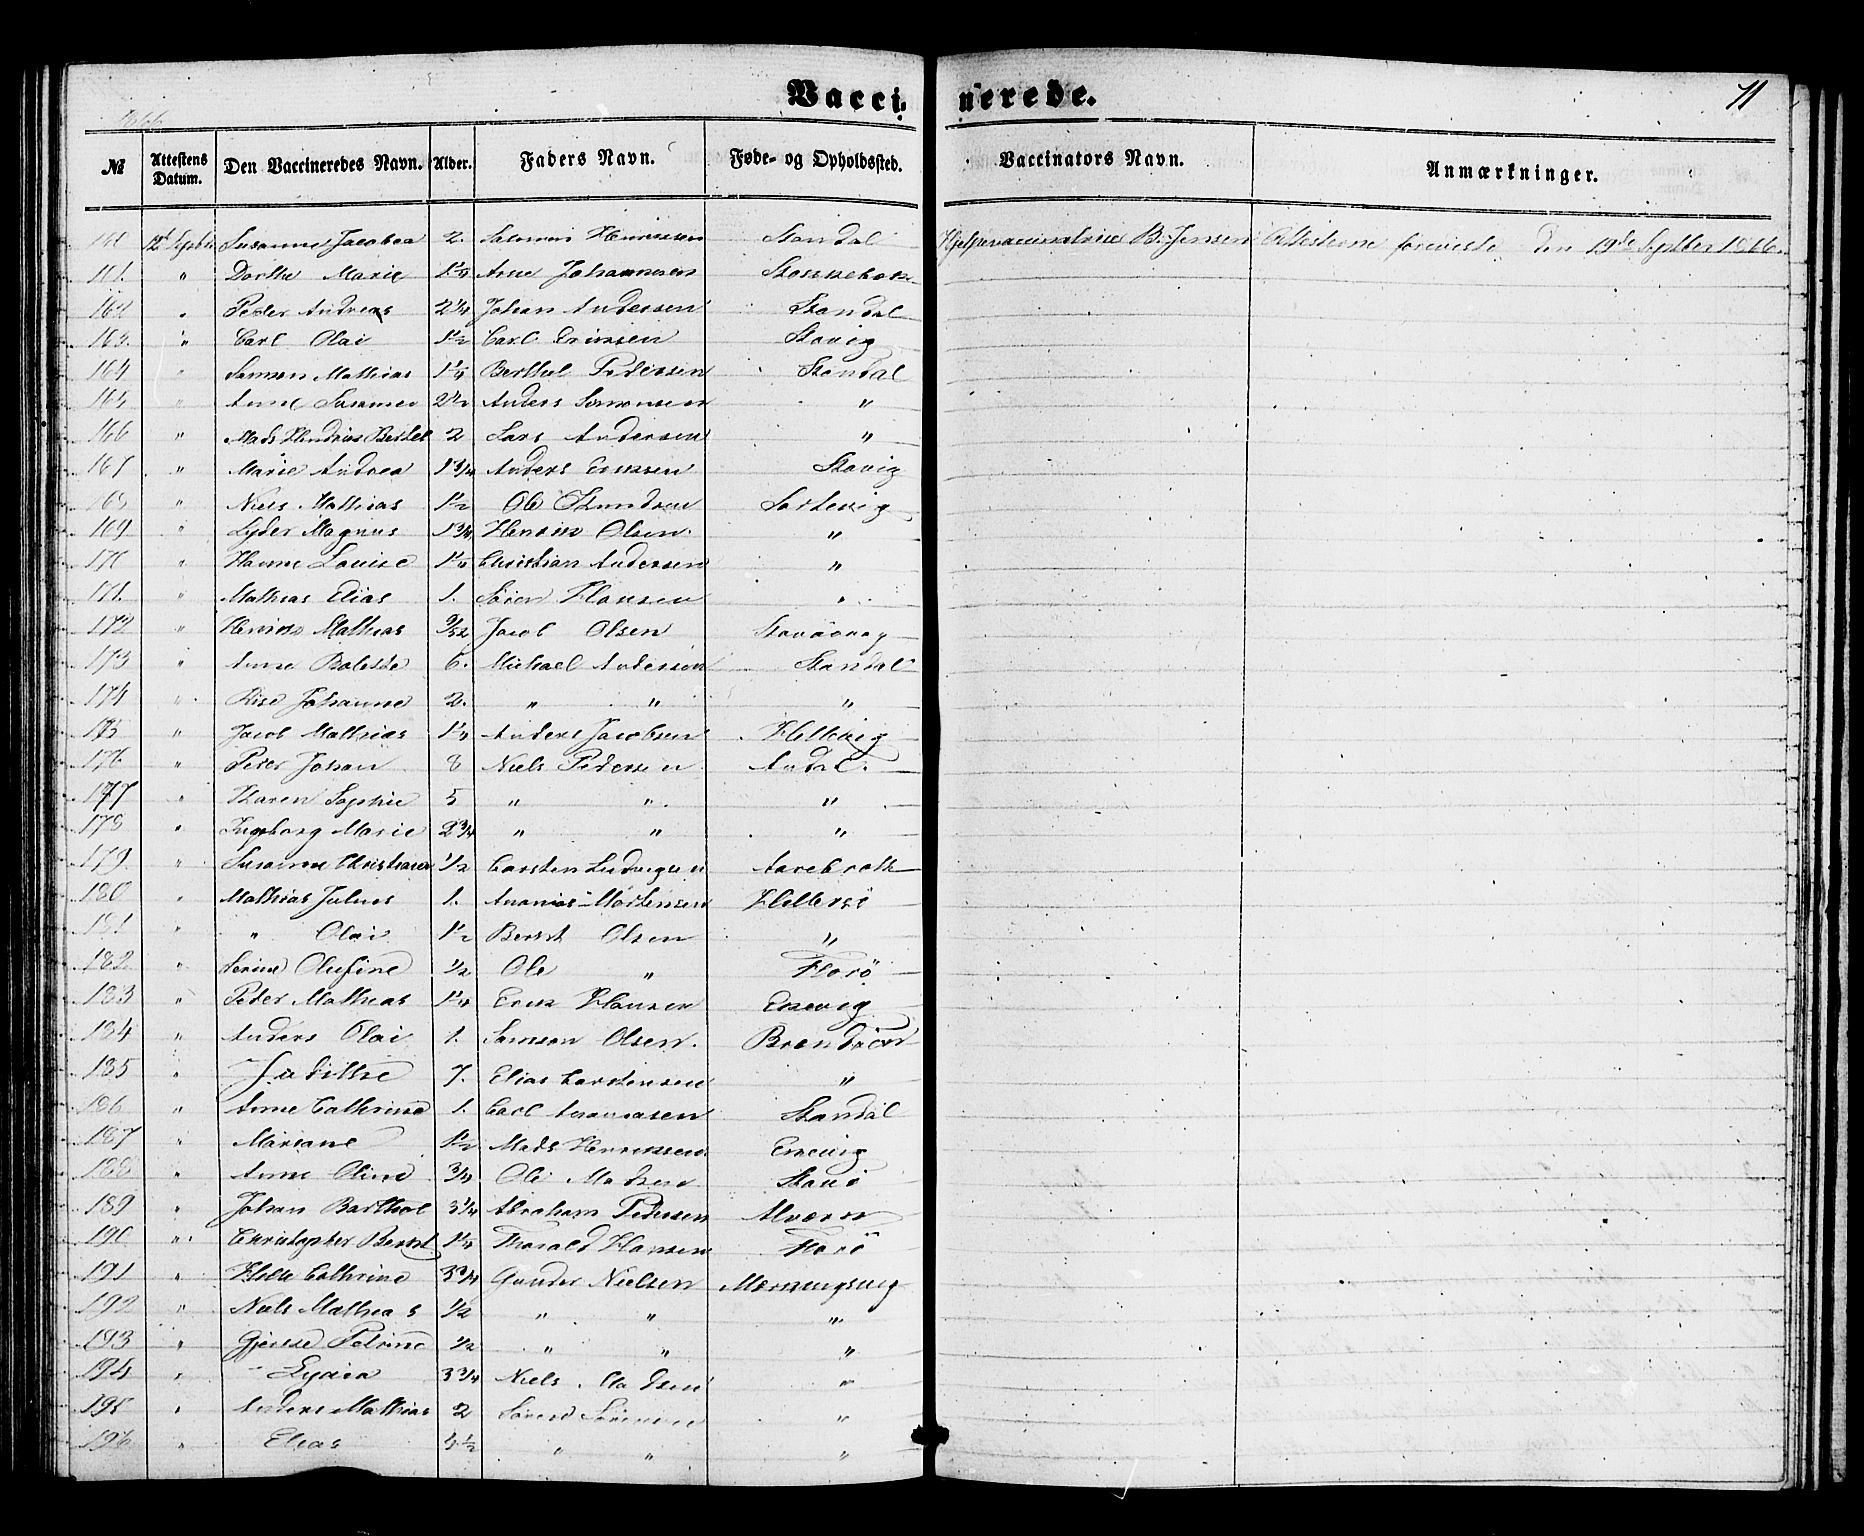 Vaccinerede.
11
1866
№ Attestens Datum. Den Vaccineredes Navn. Alder. Faders Navn. Føde- og Opholdssted. Vaccinators Navn. Anmærkninger.
160 12te Septbr Susanne Jacobea 2. Salomon Henriksen Standal Hjelpevaccinatrice B. Jensen Attesterne foreviste den 19de Septber 1866.
161. " Dorthe Marie 1¼ Arne Johannesen
162 " Peder Andreas 2¼ Johan Andersen Standal
163. " Carl Olai 1½ Carl Eriksen Stavig
164 " Samson Mathias 1¼ Berthel Pedersen Standal
165 " Anne Susanne 2½ Anders Simonsen "
166 " Mads Hendrias Berthel 2 Lars Andersen "
167 " Marie Andrea 1¾ Anders Eriksen Stavig
168 " Niels Mathias 1½ Ole
169 " Lyder Magnus 1¾ Henrik Olsen "
170 " Hanne Louise 1¼ Christian Andersen "
171. " Mathias Elias 1. Søren Hansen "
172 " Henrik Mathias 9/52 Jacob Olsen
173 " Anne Bolette 6. Michael Andersen Standal
174 " Elise Johanne 2. " " "
175 " Jacob Mathias 1¼ Anders Jacobsen Hellevig
176 " Peter Johan 8 Niels Pedersen Andal.
177 " Karen Sophie 5 " " "
178 " Ingeborg Marie 2¾ " " "
179. " Susanne Christiane ½ Carsten Ludvigsen Aarebrotk
180 " Mathias Julius 1. Ananias Mortensen Hellersø
181 " " Olai 1½ Bernt Olsen "
182 " Serine Olufine ½ Ole " Florø
183 " Peder Mathias 1¼ Erik Hansen
184 " Anders Olai 1. Samson Olsen.
185 " Judithe 7. Elias Carstensen "
186 " Anne Cathrine 1. Carl Standal
187 " Mariane 1½ Mads Henriksen
188 " Anne Oline ¾ Ole Madsen
189 " Johan Barthol 3¼ Abraham Pedersen Alværn
190 " Christopher Bernt 1¼ Thorald Hansen Florø
191 " Helle Cathrine 3¾ Gunder Nielsen
192 " Niels Mathias ½ " " "
193 " Gjertine Petrine ½ " " "
194 " Lydia 3¾ Niels Madsen "
195 " Anders Mathias 2 Søren Sørensen "
196 " Elias 4½ " " "